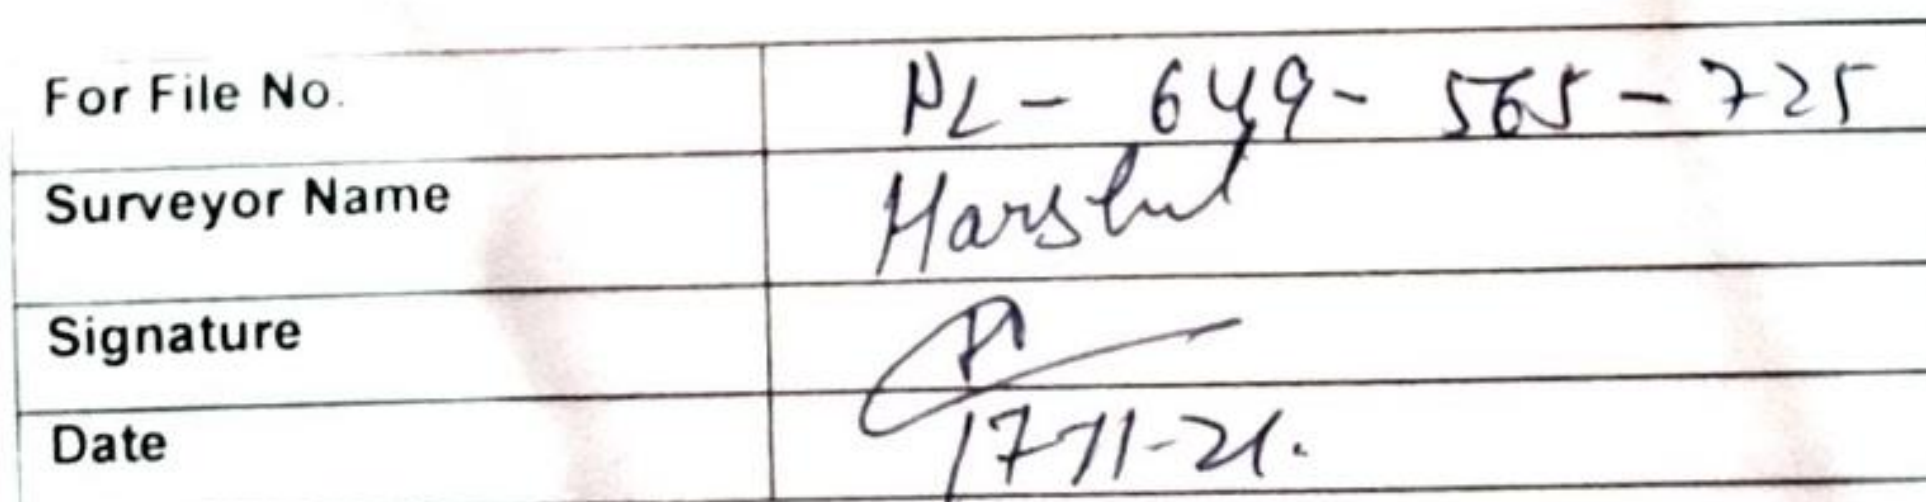 For File No. PL - 649 - 565 - 725
Surveyor Name Harshit
Signature
Date 17-11-21.